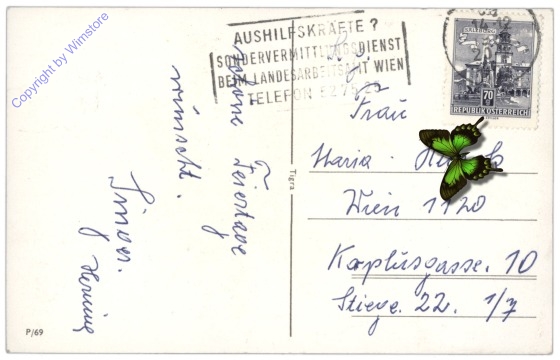 Copyright by Wimstore
AUSHILFSKRÄFTE?
SONDERVERMITTLUNGSDIENST
BEIM LANDESARBEITSAMT WIEN
TELEFON
14.12
SALZBURG
70
REPUBLIK ÖSTERREICH
Feiertage
wünscht
Tigra
Frau
Maria
Wien 1120
Karplusgasse. 10
Stiege. 22. 1/7
P/69